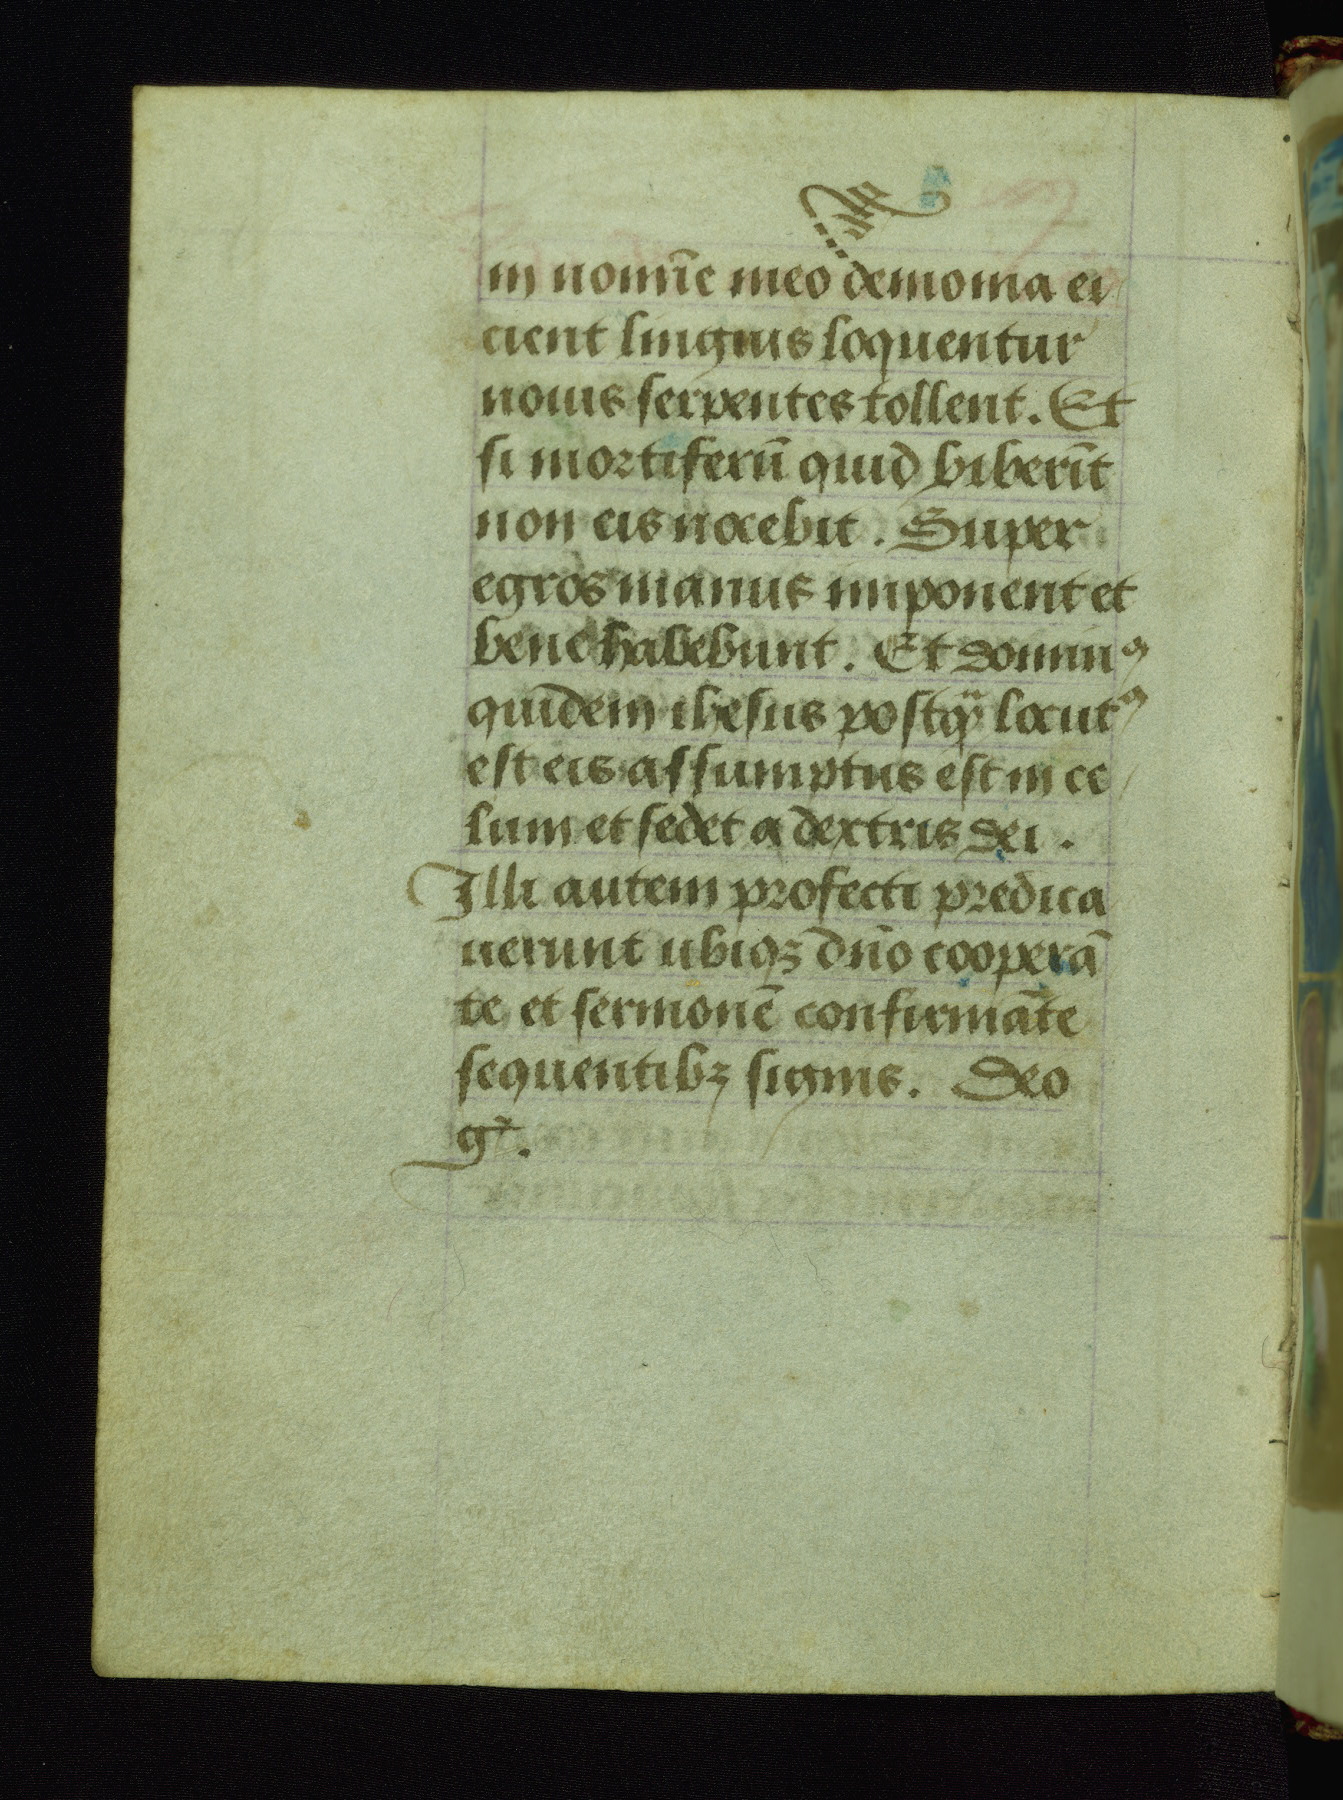 in nomīe meo demonia ei
cient linguis loquentur
nouis serpentes tollent. Et
si mortiferū quid biberīt
non eis nocebit. Super
egros manus imponent et
bene habebunt. Et dominꝰ
quidem ihesus postꝙ̄ locutꝰ
est eis assumptus est in ce
lum et sedet a dextris dei.
Illi autem profecti predica
uerunt ubiqꝫ dn̄o cooperā
te et sermonē confirmāte
sequentibꝫ signis. Deo